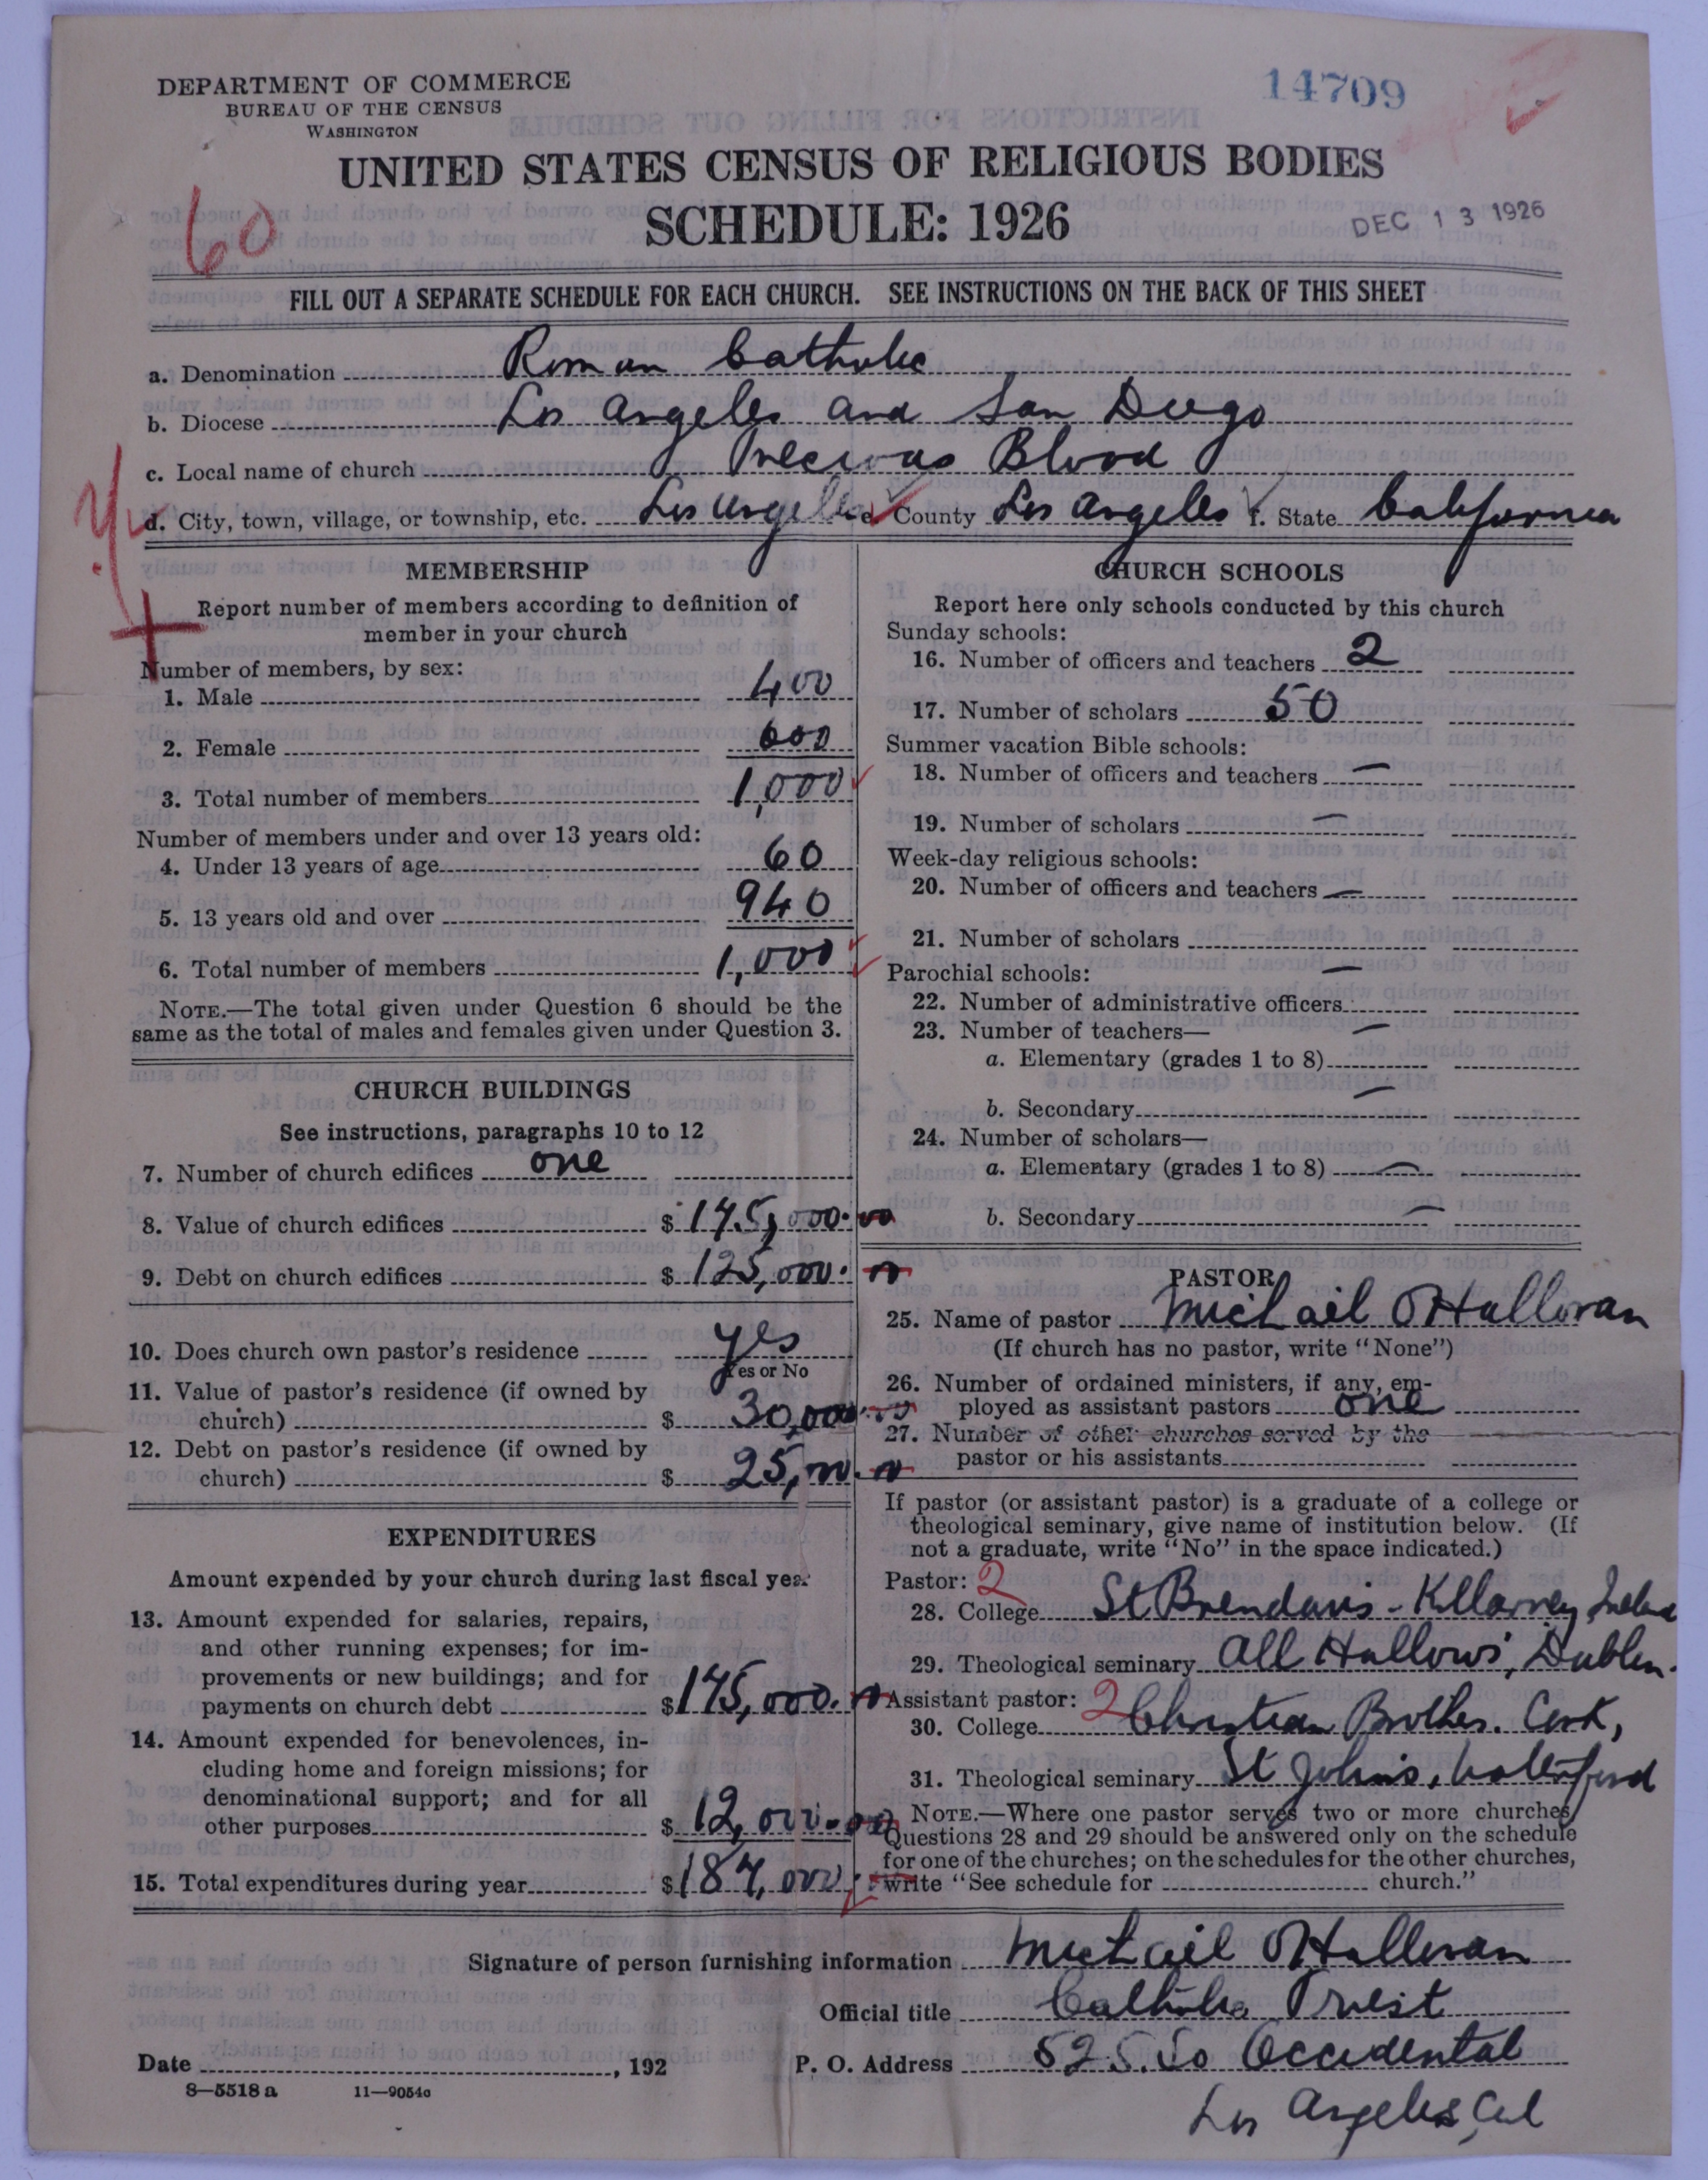 DEPARTMENT OF COMMERCE
BUREAU OF THE CENSUS
WASHINGTON
14709
UNITED STATES CENSUS OF RELIGIOUS BODIES
SCHEDULE: 1926
DEC 13 1926
60
FILL OUT A SEPARATE SCHEDULE FOR EACH CHURCH. SEE INSTRUCTIONS ON THE BACK OF THIS SHEET
a. Denomination Roman Catholic
b. Diocese Los Angeles and San Diego
c. Local name of church Precious Blood
d. City, town, village, or township, etc. Los Angeles e. County Los Angeles f. State California
MEMBERSHIP
Report number of members according to definition of
member in your church
Number of members, by sex:
1. Male 400
2. Female 600
3. Total number of members 1,000
Number of members under and over 13 years old:
4. Under 13 years of age 60
5. 13 years old and over 940
6. Total number of members 1,000
NOTE.—The total given under Question 6 should be the
same as the total of males and females given under Question 3.
CHURCH BUILDINGS
See instructions, paragraphs 10 to 12
7. Number of church edifices one
8. Value of church edifices $ 175,000.00
9. Debt on church edifices $ 125,000.00
10. Does church own pastor's residence yes
Yes or No
11. Value of pastor's residence (if owned by
church) $ 30,000.00
12. Debt on pastor's residence (if owned by
church) $ 25,000.00
EXPENDITURES
Amount expended by your church during last fiscal year
13. Amount expended for salaries, repairs,
and other running expenses; for im-
provements or new buildings; and for
payments on church debt $ 175,000.00
14. Amount expended for benevolences, in-
cluding home and foreign missions; for
denominational support; and for all
other purposes $ 12,000.00
15. Total expenditures during year $ 187,000
CHURCH SCHOOLS
Report here only schools conducted by this church
Sunday schools:
16. Number of officers and teachers 2
17. Number of scholars 50
Summer vacation Bible schools:
18. Number of officers and teachers —
19. Number of scholars —
Week-day religious schools:
20. Number of officers and teachers —
21. Number of scholars
Parochial schools: —
22. Number of administrative officers
23. Number of teachers— —
a. Elementary (grades 1 to 8)
b. Secondary —
24. Number of scholars—
a. Elementary (grades 1 to 8) —
b. Secondary —
PASTOR
25. Name of pastor Michael O'Halloran
(If church has no pastor, write "None")
26. Number of ordained ministers, if any, em-
ployed as assistant pastors one
27. Number of other churches served by the
pastor or his assistants
If pastor (or assistant pastor) is a graduate of a college or
theological seminary, give name of institution below. (If
not a graduate, write "No" in the space indicated.)
Pastor: 2
28. College St Brendan's - Killarney, Ireland
29. Theological seminary All Hallows, Dublin.
Assistant pastor: 2
30. College Christian Brothers. Cork,
31. Theological seminary St John's, Waterford
NOTE.—Where one pastor serves two or more churches,
Questions 28 and 29 should be answered only on the schedule
for one of the churches; on the schedules for the other churches,
write "See schedule for church."
Signature of person furnishing information Michael O'Halloran
Official title Catholic Priest
Date , 192 P. O. Address 525. So Occidental
8—5518 a 11—9054a
Los Angeles, Cal